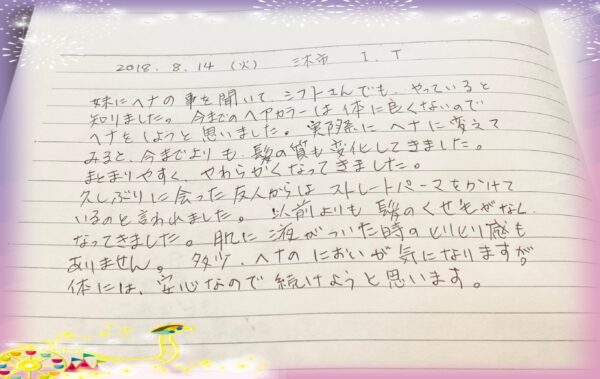 2018. 8. 14 (火) 三木市 I. T
妹にヘナの事を聞いて シフトさんでも、やっていると
知りました。今までのヘアカラーは体に良くないので
ヘナをしようと思いました。実際に ヘナに変えて
みると、今までよりも、髪の質も変化してきました。
まとまりやすく、やわらかくなってきました。
久しぶりに会った友人からは ストレートパーマをかけて
いるのと言われました。以前よりも 髪のくせ毛がなく
なってきました。肌に液がついた時のヒリヒリ感も
ありません。多少、ヘナの においが 気になりますが、
体には、安心なので 続けようと思います。